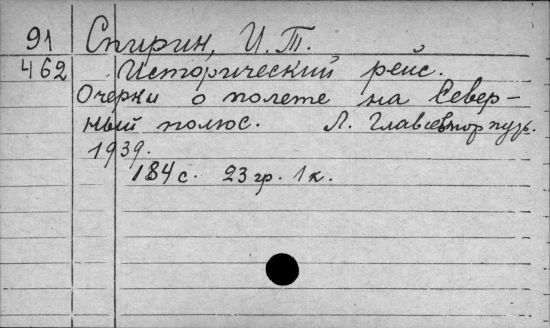 91 Спирин, И. Т.
462 Исторический рейс.
Очерки о полете на Север-
ный полюс. Л. Главсевморпуть.
1939.
184 с. 23 гр. 1 к.